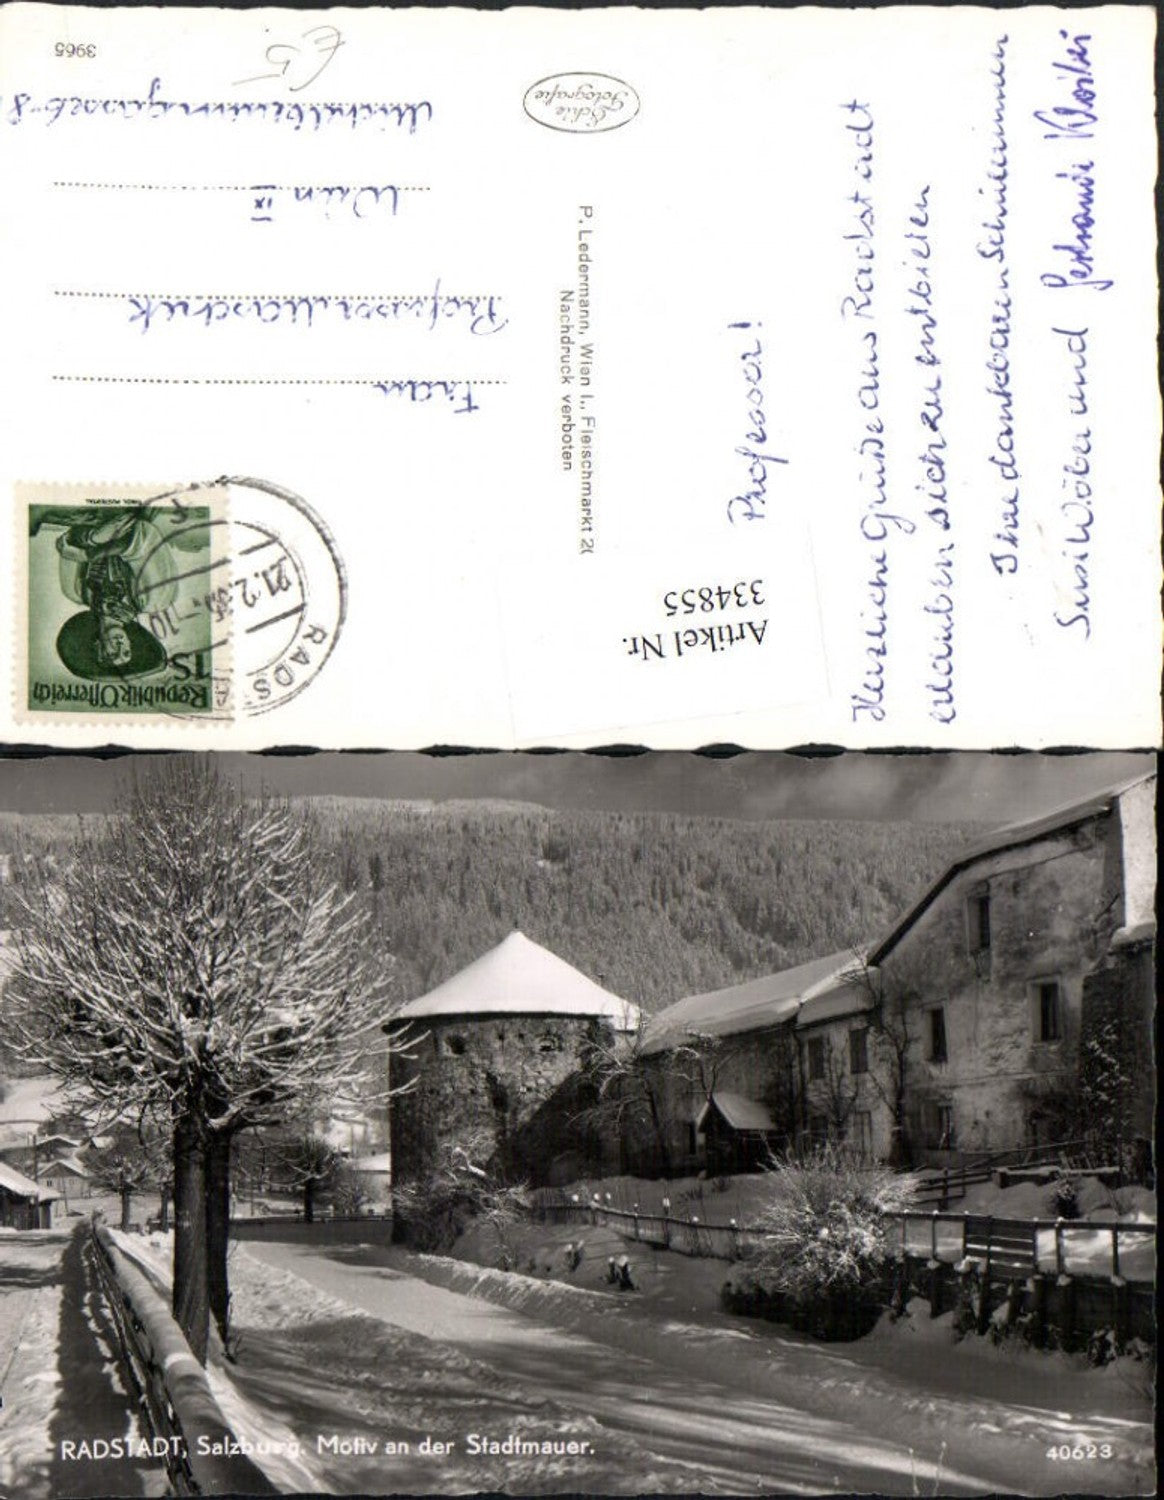 Professor!
Herzliche Grüße aus Radstadt
erlauben sich zu entbieten
Ihre dankbaren Schülerinnen
Susi Wöber und
P. Ledermann, Wien I., Fleischmarkt 20
Nachdruck verboten
Echte
Fotografie
Artikel Nr.
334855
Republik Österreich
1S
RADS
21.2.
-10
Frau
Professor
Wien IX
3965
RADSTADT, Salzburg. Motiv an der Stadtmauer.
40623